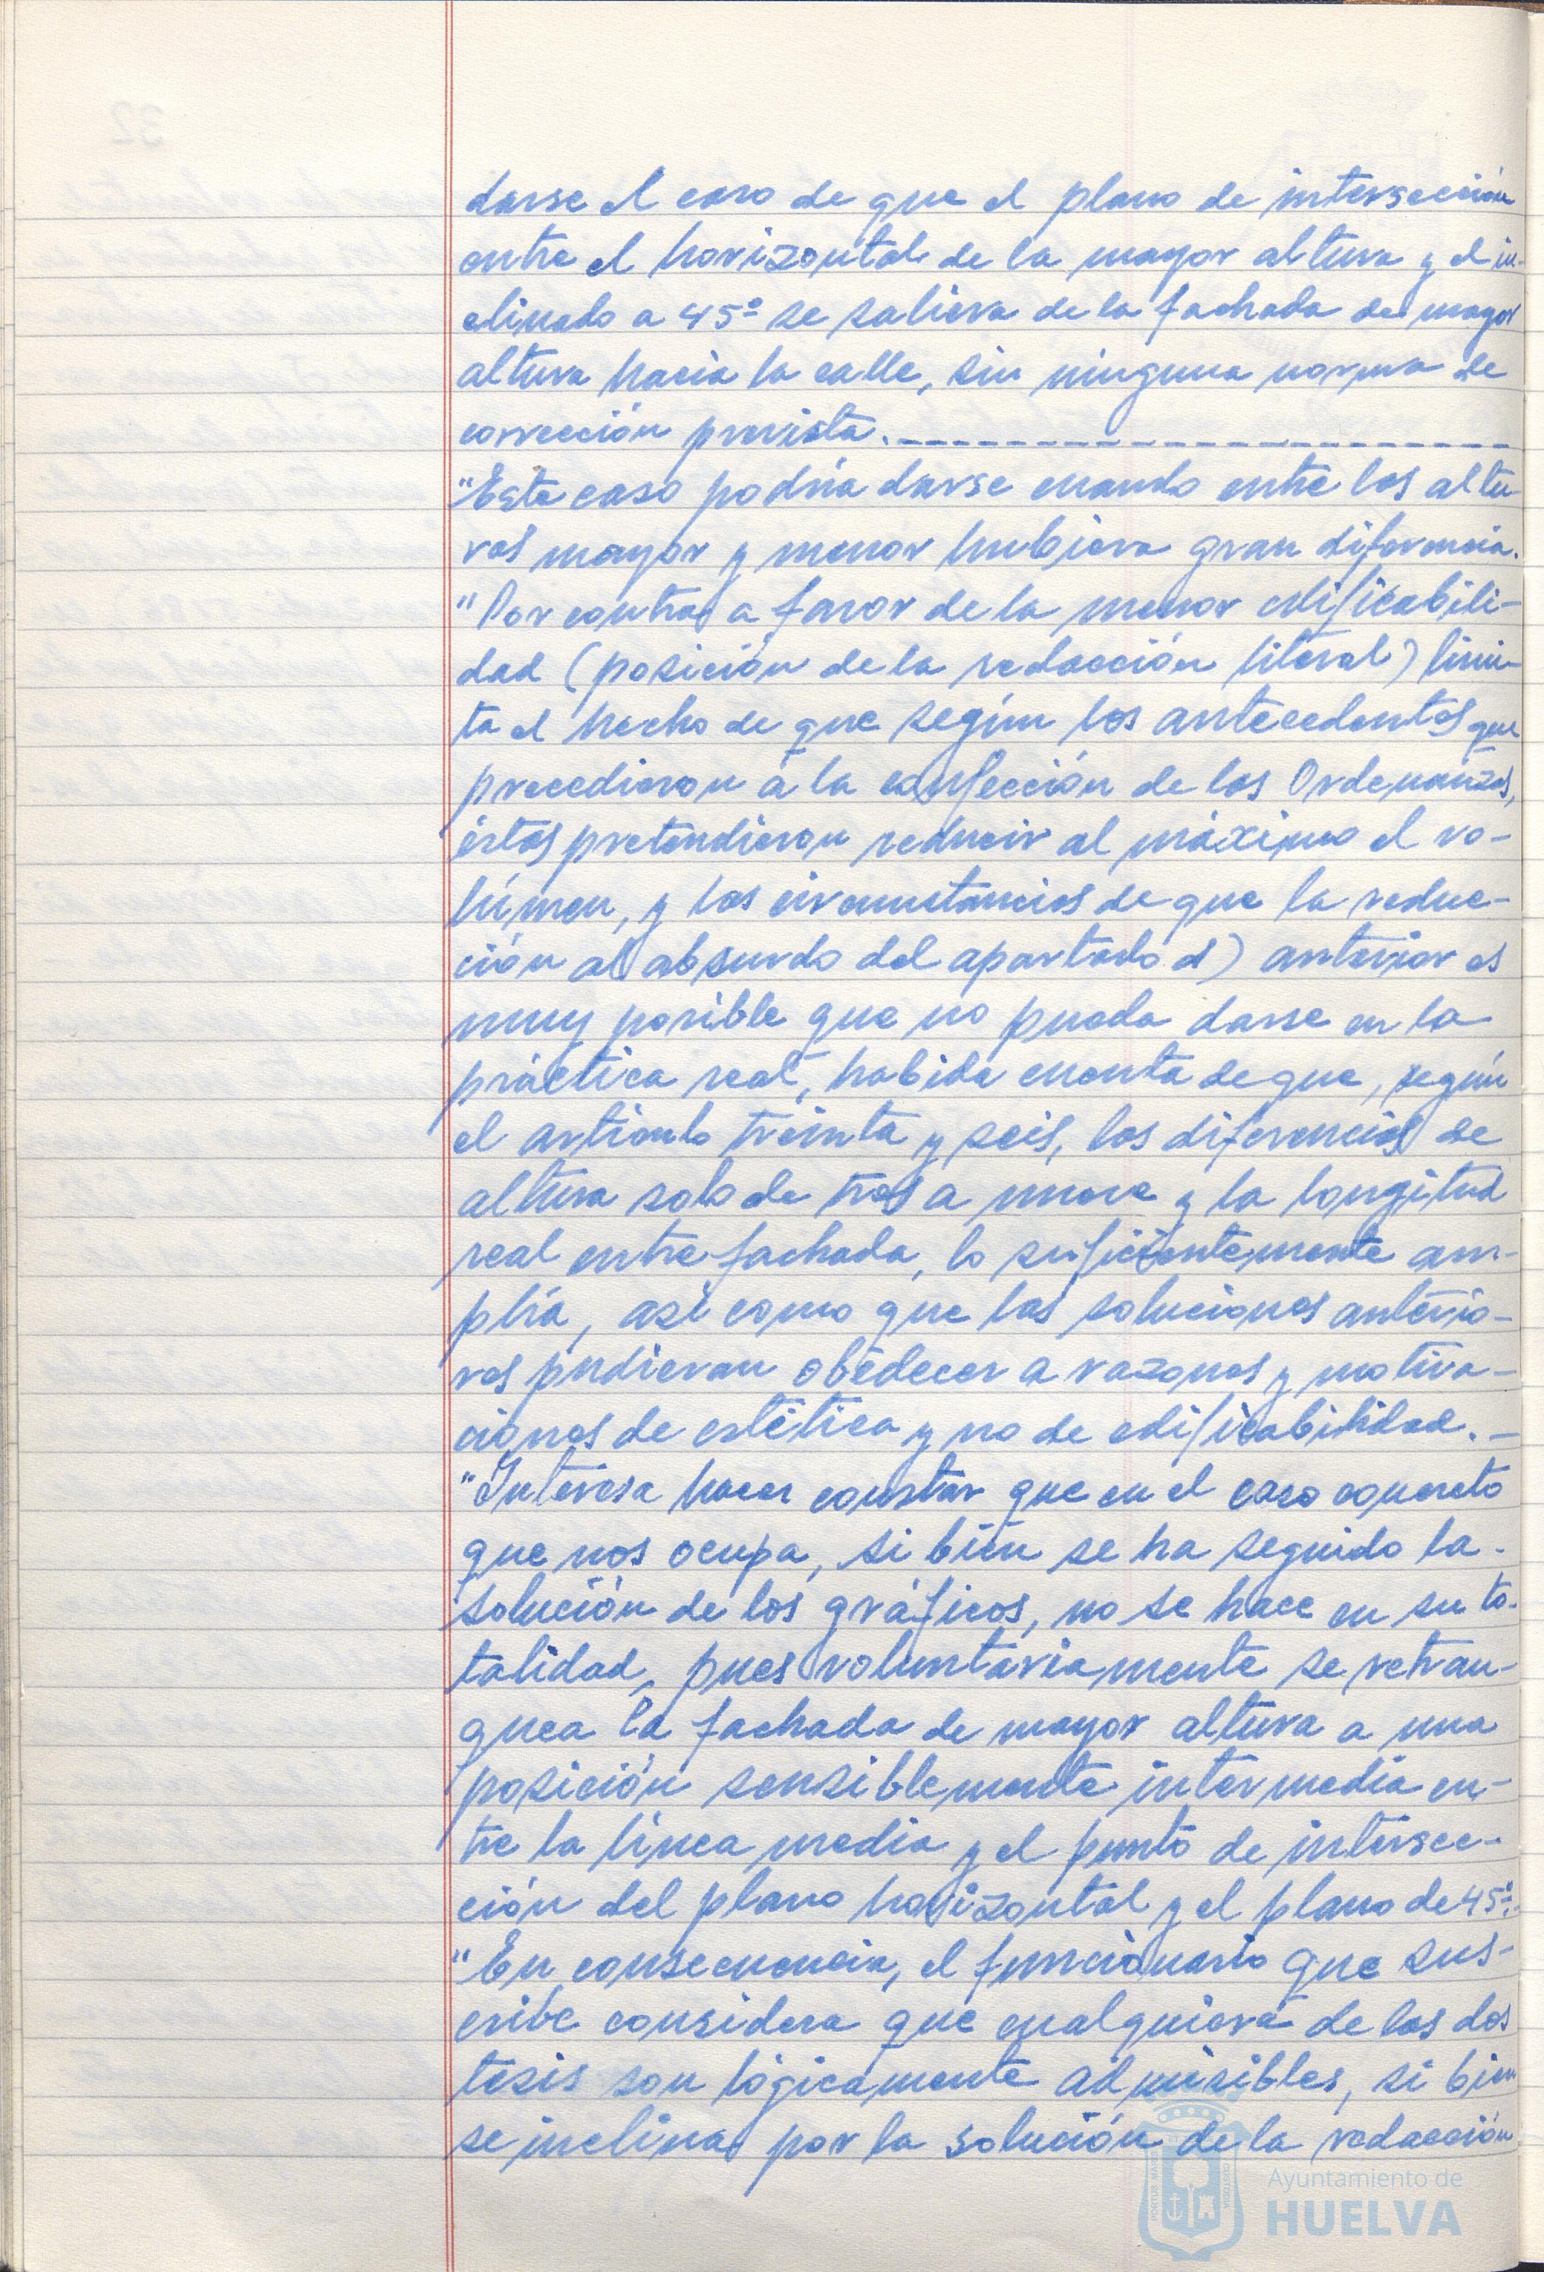 darse el caso de que el plano de intersección
entre el horizontal de la mayor altura y el in-
clinado a 45º se saliera de la fachada de mayor
altura hacia la calle, sin ninguna norma de
corrección prevista.
"Este caso podría darse cuando entre las altu-
ras mayor y menor hubiera gran diferencia.
"Por contra, a favor de la menor edificabili-
dad (posición de la redacción literal) limi-
ta el hecho de que según los antecedentes que
precedieron a la confección de las Ordenanzas,
éstas pretendieron reducir al máximo el vo-
lúmen, y las circunstancias de que la reduc-
ción al absurdo del apartado d) anterior es
muy posible que no pueda darse en la
práctica real, habida cuenta de que, según
el artículo treinta y seis, las diferencias de
altura solo de tres a nueve y la longitud
real entre fachada, lo suficientemente am-
plia, así como que las soluciones anterio-
res pudieran obedecer a razones y motiva-
ciones de estética y no de edificabilidad.-
"Interesa hacer constar que en el caso concreto
que nos ocupa, si bien se ha seguido la-
solución de los gráficos, no se hace en su to-
talidad, pues voluntariamente se retran-
quea la fachada de mayor altura a una
posición sensiblemente intermedia en-
tre la línea media y el punto de intersec-
ción del plano horizontal y el plano de 45º.-
"En consecuencia, el funcionario que sus-
cribe considera que cualquiera de las dos
tesis son lógicamente admisibles, si bien
se inclina por la solución de la redacción
Ayuntamiento de
HUELVA